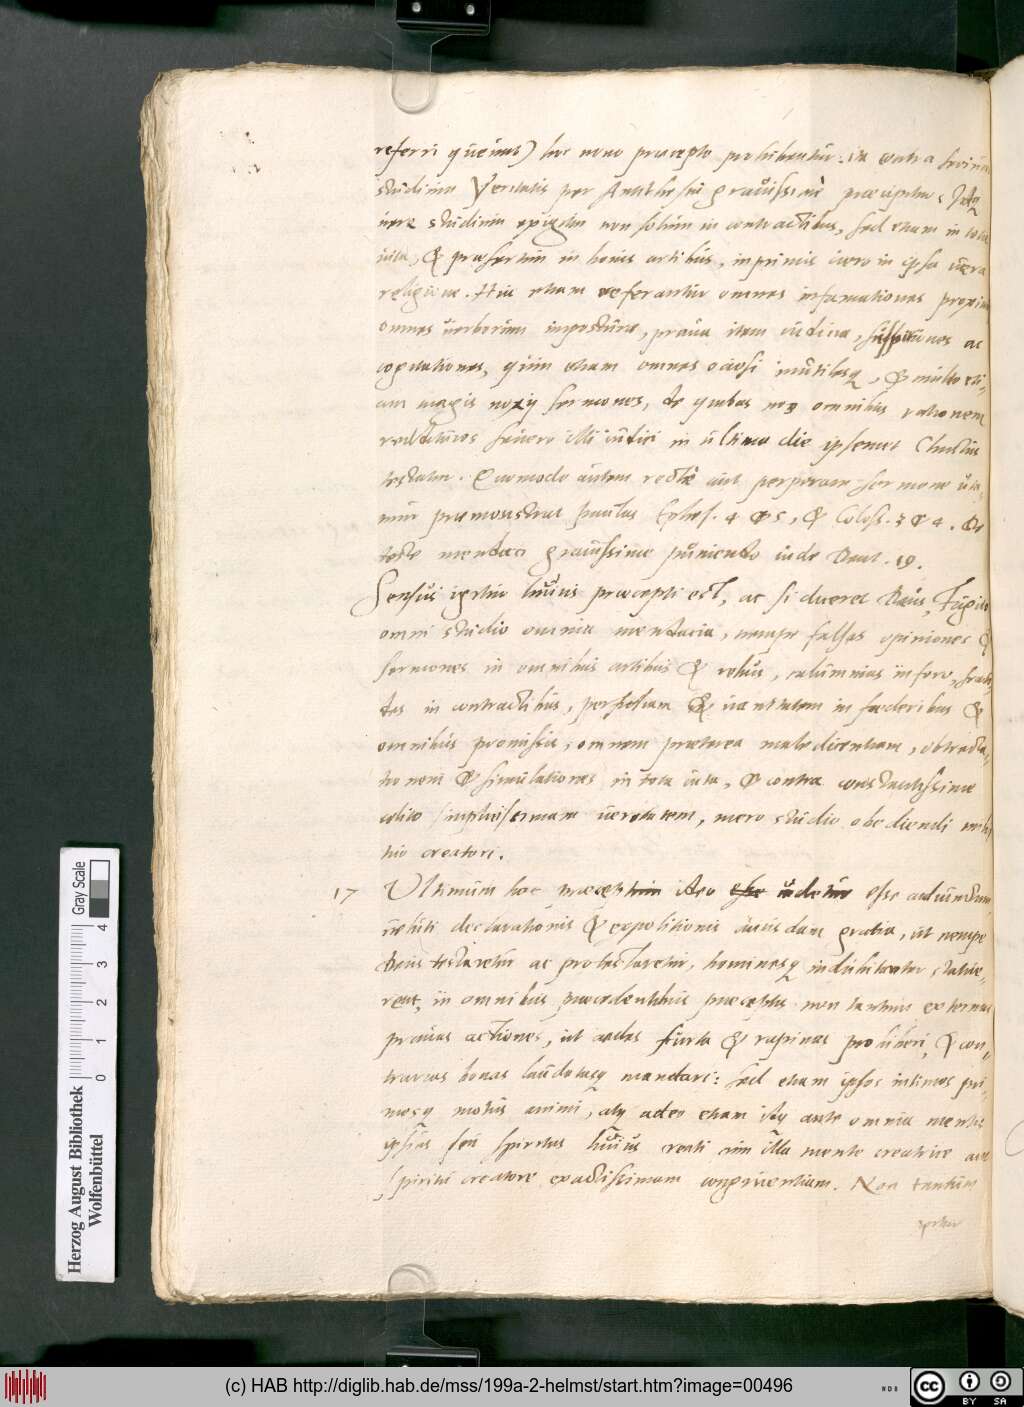 referri queunt) hoc nono præcepto prohibentur. ita contra
studium Veritatis per Antithesin grauissimè præcipitur.
studium exigitur non solum in contractibus, sed etiam in tota
uita, & præsertim in bonis artibus, inprimis uero in ipsa uera
religione. Huc etiam referantur omnes infamationes
omnes uerborum imposturæ, praua item iudicia, suspitiones ac
cogitationes, quin etiam omnes ociosi inutilesq, & multo eti-
am magis noxij sermones, de quibus nos omnibus rationem
reddituros seuero illi iudici in ultimo die ipsemet Christus
testatur. Quomodo autem rectè aut perperam sermone uta-
mur præmonstrat Paulus Ephes. 4 & 5, & Coloss. 3 & 4. De
teste mendaci grauissime puniendo uide Deut. 19.
Sensus igitur huius præcepti est, ac si diceret Deus, Fugite
omni studio omnia mendacia, nempe falsas opiniones &
sermones in omnibus artibus & rebus, calumnias in foro, frau-
des in contractibus, perfidiam & uanitatem in foederibus &
omnibus promissis, omnem præterea maledicentiam, obtrecta-
tionem & simulationes in tota uita, & contra constantissime
colite simplicissimam ueritatem, mero studio obediendi mihi
creatori.
17 Ultimum hoc præceptum ideo esse uidetur esse adiunctum
ueluti declarationis & expolitionis cuiusdam gratia, ut nempe
Deus testaretur ac protestaretur, hominesq indubitanter statue-
rent, in omnibus præcedentibus præceptis non tantum externas
prauas actiones, ut cædes furta & rapinas prohiberi, & con-
trarias bonas laudatasq mandari: sed etiam ipsos intimos pri-
mosq motus animi, adeo etiam ante omnia mentis
ipsius seu spiritus huius creati cum illa mente creatrice aut
spiritu creatore exactissimam conuenientiam. Non tantum